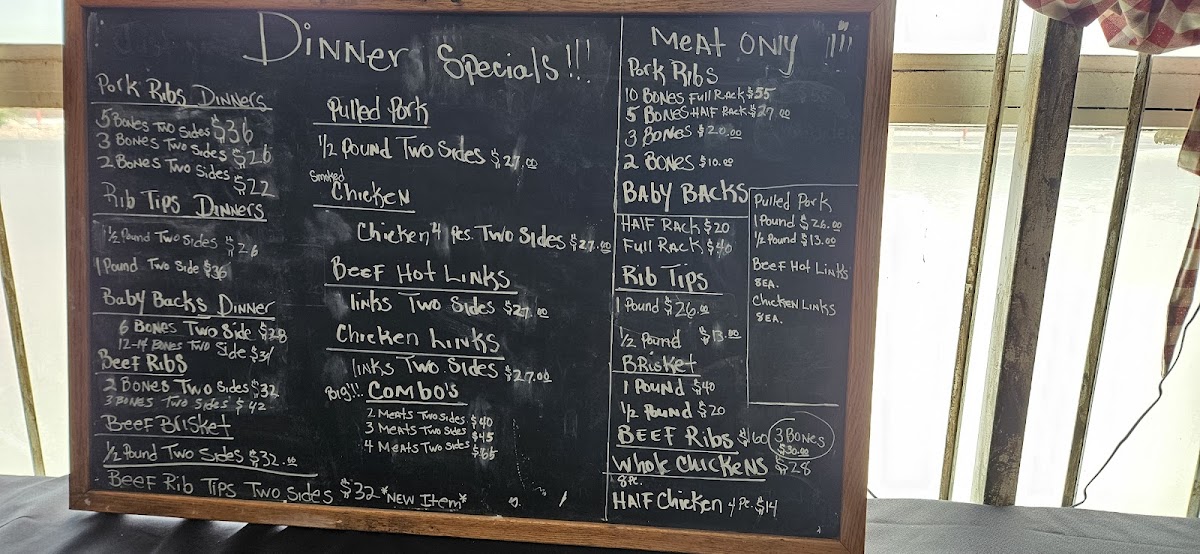 Dinner Specials!!!
Pork Ribs Dinners
5 Bones Two Sides $36
3 Bones Two Sides $26
2 Bones Two Sides $22
Rib Tips Dinners
1/2 Pound Two Sides $26
1 Pound Two Side $36
Baby Backs Dinner
6 Bones Two Side $28
12-14 Bones Two Side
Beef Ribs
2 Bones Two Sides $32
3 Bones Two Sides $42
Beef Brisket
1/2 Pound Two Sides $32.00
Beef Rib Tips Two Sides $32 *New Item*
Pulled Pork
1/2 Pound Two Sides $27.00
Smoked
Chicken
Chicken 4 Pcs. Two Sides $27.00
Beef Hot Links
links Two Sides $27.00
Chicken Links
links Two Sides $27.00
Big!!! Combo's
2 Meats Two Sides $40
3 Meats Two Sides $45
4 Meats Two Sides
Meat Only !!!
Pork Ribs
10 Bones Full Rack $55
5 Bones Half Rack $27.00
3 Bones $20.00
2 Bones $10.00
Baby Backs
Half Rack $20
Full Rack $40
Rib Tips
1 Pound $26.00
1/2 Pound $13.00
Brisket
1 Pound $40
1/2 Pound $20
Beef Ribs $160
3 Bones
$30.00
Whole Chickens $28
8 Pc.
Half Chicken 4 Pc. $14
Pulled Pork
1 Pound $26.00
1/2 Pound $13.00
Beef Hot Links
8 EA.
Chicken Links
8 EA.